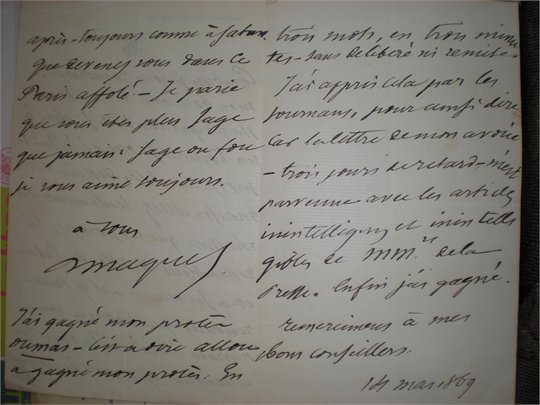 après - toujours comme à
que devenez vous dans ce
Paris affolé - Je parie
que vous êtes plus sage
que jamais: sage ou fou
je vous aime toujours.
à vous
Maquet
J'ai gagné mon procès
Dumas - c'est à dire
a gagné mon procès. En
trois mots, en trois minu
tes - sans délibéré ni remise.
J'ai appris cela par les
journaux, pour ainsi dire
car la lettre de mon avoué
- trois jours de retard - m'est
parvenue avec les articles
inintelligens et inintelli
gibles de MM. de la
Presse. Enfin j'ai gagné.
remerciemens à mes
bons conseillers
14 mars 69